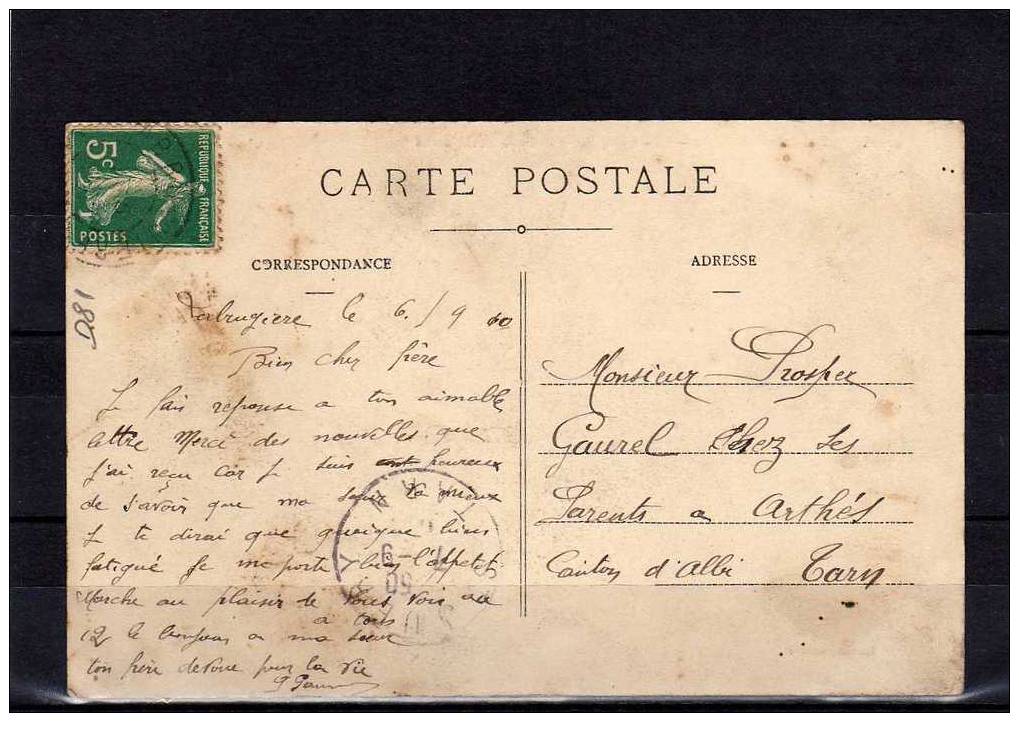 CARTE POSTALE
CORRESPONDANCE
ADRESSE
REPUBLIQUE FRANÇAISE
5c
POSTES
D81
Labrugiere le 6/9
Bien cher frère
Je fais reponse a ton aimable
lettre Merci des nouvelles que
j'ai reçu car je suis heureux
de savoir que ma sœur va mieux
je te dirai que quoique bien
fatigué je me porte bien l'appetit
Marche au plaisir de vous voir au
a tous
12 le bonjour a ma sœur
ton frère devoué pour la vie
Monsieur Prosper
Gaurel chez ses
Parents a Arthés
Canton d'Albi Tarn
TARN
6-9
09